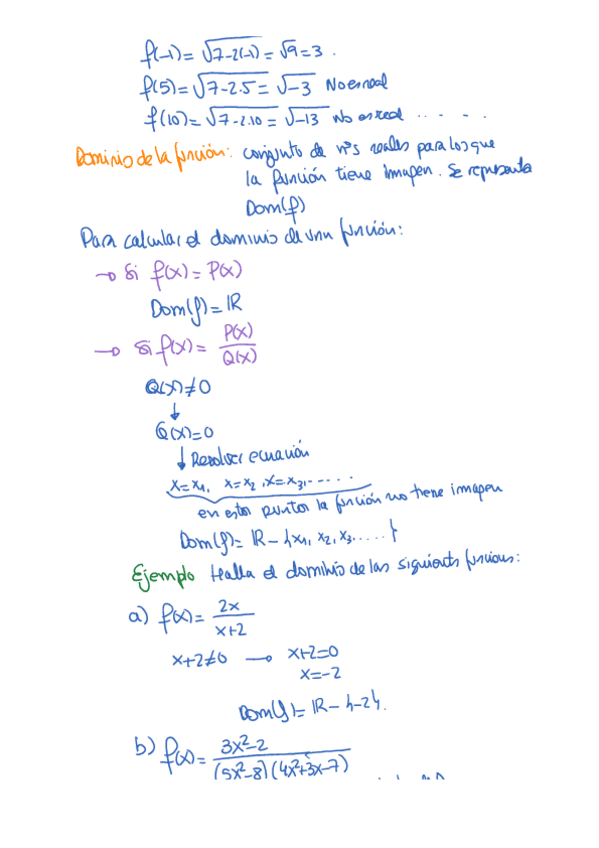 f(-1) = √7-2(-1) = √9 = 3.
f(5) = √7-2.5 = √-3 No es real
f(10) = √7-2.10 = √-13 No es real .. - - .
Dominio de la función: conjunto de nºs reales para los que
la función tiene imagen. Se representa
Dom(f)
Para calcular el dominio de una función:
→ Si f(x) = P(x)
Dom(f) = ℝ
→ Si f(x) = P(x)/Q(x)
Q(x) ≠ 0
↓
Q(x) = 0
↓ Resolver ecuación
x = x₁, x = x₂, x = x₃, - - . . .
en estos puntos la función no tiene imagen
Dom(f) = ℝ - {x₁, x₂, x₃, ....}
Ejemplo Halla el dominio de las siguients funcions:
a) f(x) = 2x/x+2
x+2 ≠ 0 → x+2 = 0
x = -2
Dom(f) = ℝ - {-2}.
b) f(x) = 3x²-2/(5x²-8)(4x²+3x-7)